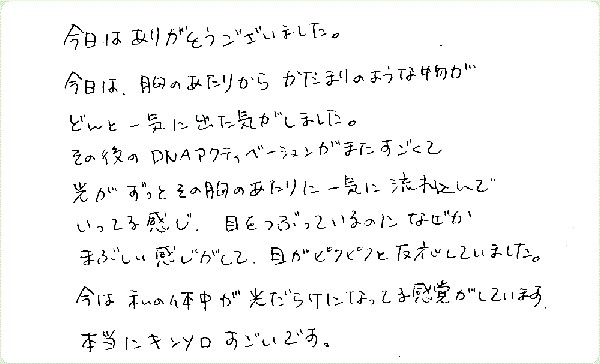 今日はありがとうございました。
今日は、胸のあたりから かたまりのような物が
どんと一気に出た気がしました。
その後のDNAアクティベーションがまたすごくて
光がずっとその胸のあたりに一気に流れ込んで
いってる感じ、目をつぶっているのになぜか
まぶしい感じがして、目がピクピクと反応していました。
今は私の体中が光だらけになってる感覚がしています
本当にキンソロすごいです。